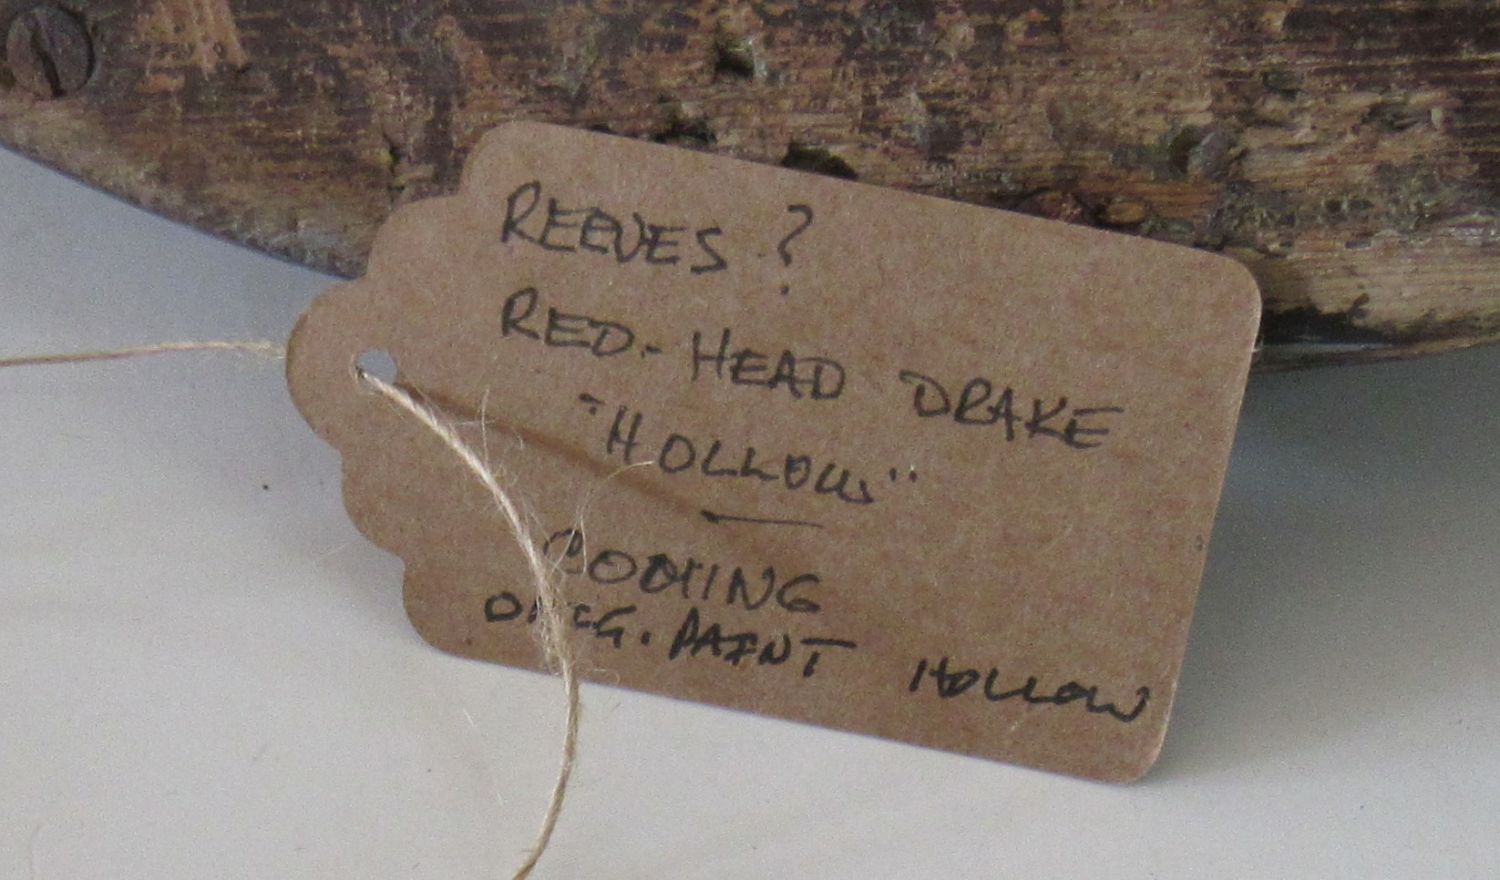 REEVES ?
RED-HEAD DRAKE
"HOLLOW"
ORIG. PAINT HOLLOW